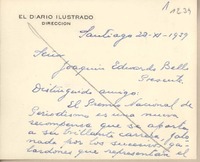 1 1234
EL DIARIO ILUSTRADO
DIRECCION
Santiago 22-XI-1959
Señor
Joaquín Edwards Bello
Presente
Distinguido amigo:
El Premio Nacional de
Periodismo es una nueva
recompensa que se aporta
a su brillante carrera, jalo-
nada por los sucesivos ga-
lardones que representan el